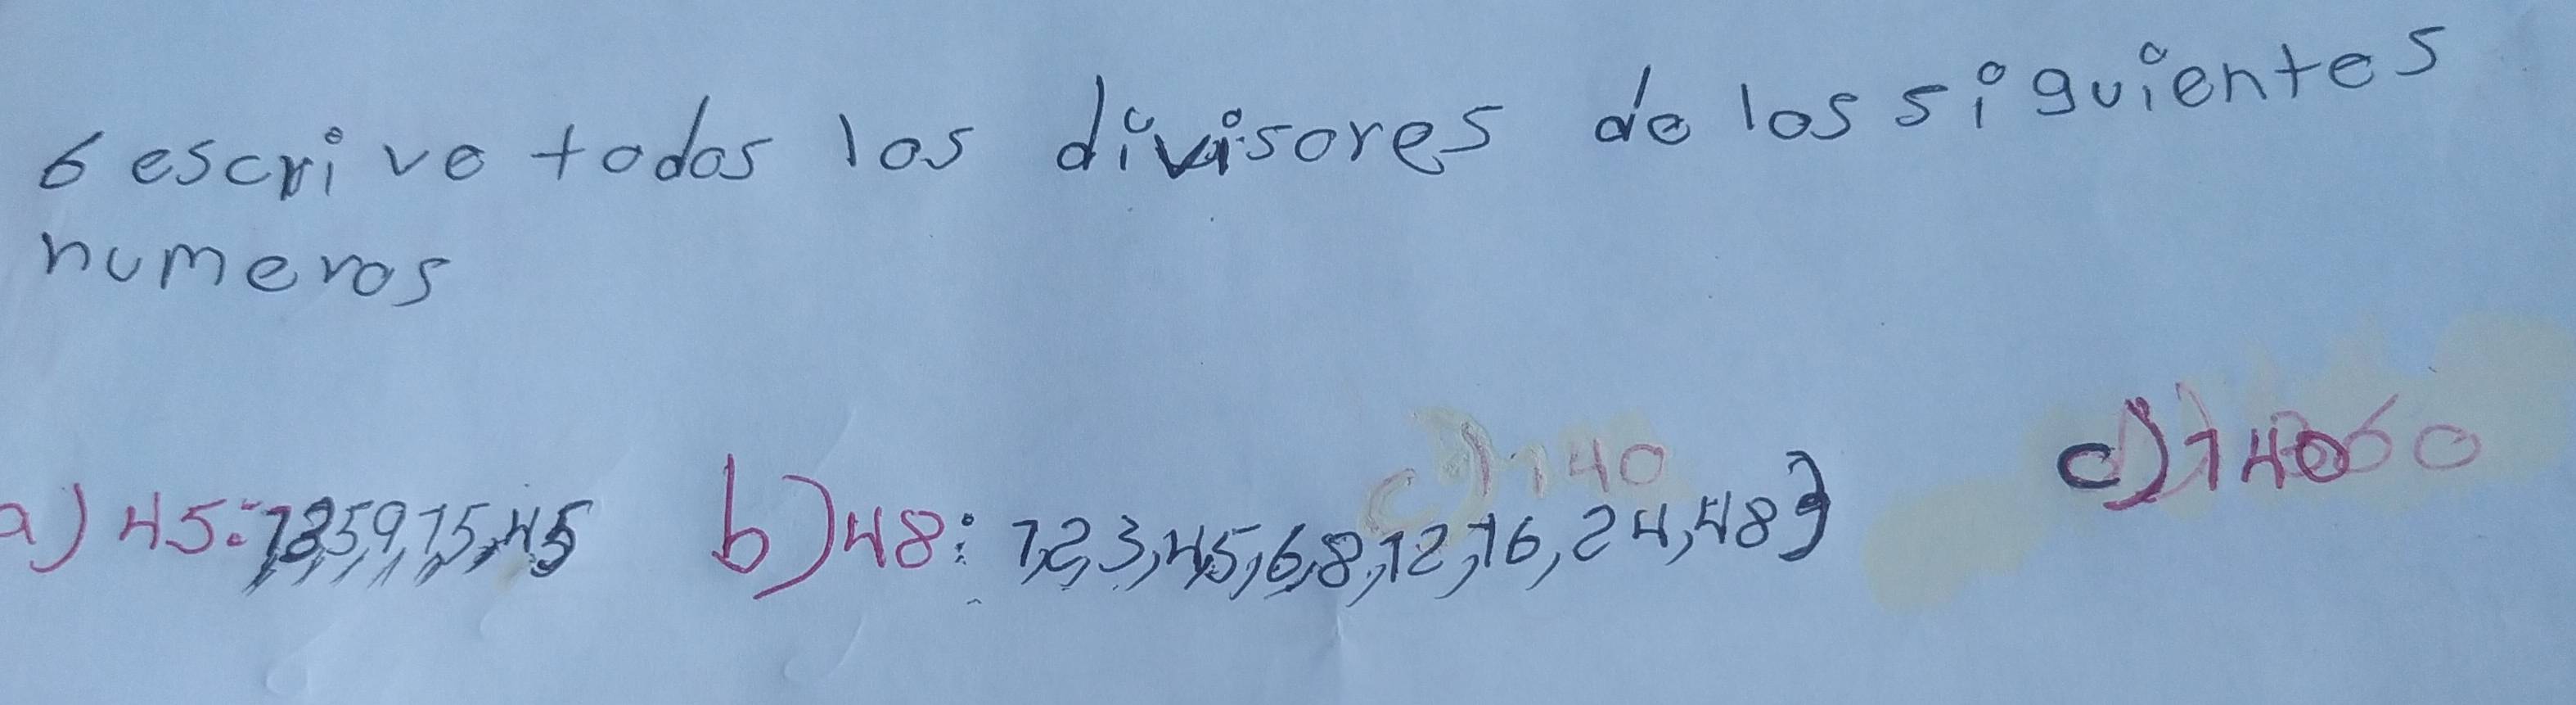 6 escrive todos los divisores de los siguientes
numeros
a) 45: 1,3,5,9,15,45 b) 48: 1,2,3,4,5,6,8,12,16,24,48} c) 140
c) 140